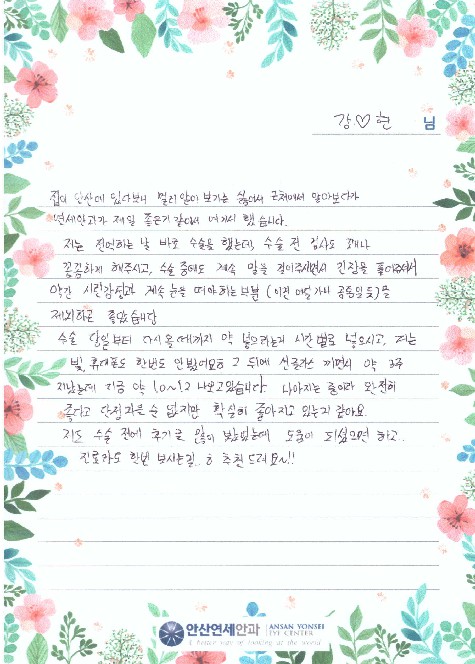 강♡현 님
집이 안산에 있다보니 멀리 알아보기는 싫어서 근처에서 알아보다가
연세안과가 제일 좋은거 같아서 여기서 했습니다.
저는 진검하는 날 바로 수술을 했는데, 수술 전 검사도 꽤나
꼼꼼하게 해주시고, 수술 중에도 계속 말을 걸어주시면서 긴장을 풀어주셔서
약간 시린감정과 계속 눈을 떠야하는 부분 (이건 어딜가나 공통일듯)을
제외하고 좋았습니다
수술 당일부터 다시 올때까지 약 넣으라는거 시간별로 넣으시고, 저는
빛, 휴대폰도 한번도 안봤어요ㅎ 그 뒤에 선글라스 끼면서 약 3주
지났는데 지금 약 1.0~1.2 나오고있습니다 나아지는 중이라 완전히
좋다고 단정지을 수 없지만 확실히 좋아지고 있는거 같아요.
저도 수술 전에 후기를 많이 봤었는데 도움이 되셨으면 하고.
진료라도 한번 보시는걸.. ㅎ 추천드려요~!!
안산연세안과 ANSAN YONSEI EYE CENTER
A better way of looking at the world